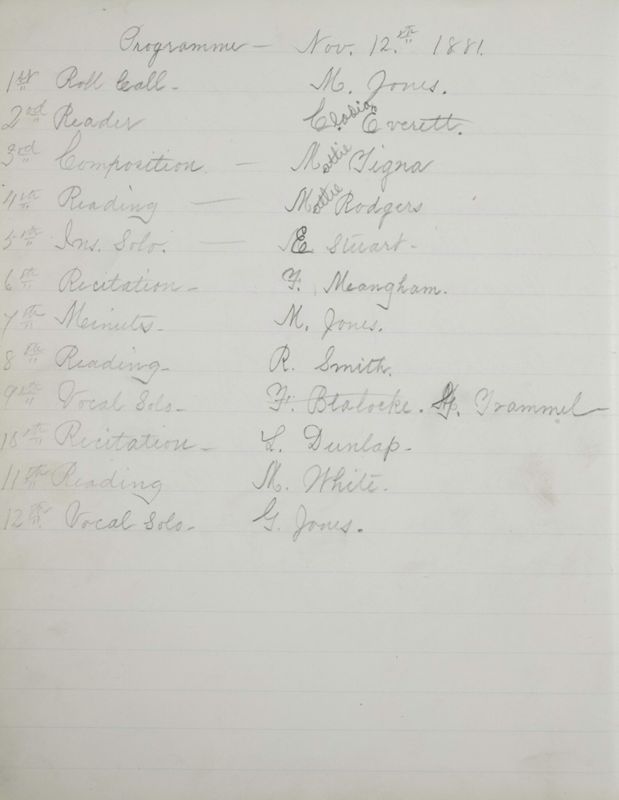 Programme — Nov. 12.th 1881.
1st Roll Call - M. Jones.
2nd Reader Clodia Everett.
3rd Composition. — Mattie Tigna
4th Reading — Mattie Rodgers
5th Ins. Solo. — E Stuart -
6th Recitation - F. Meangham.
7th Meinuts - M. Jones.
8th Reading - R. Smith.
9th Vocal Solo - F. Blalocke. Trammel
10th Recitation - L. Dunlap -
11th Reading M. White.
12th Vocal Solo - G. Jones.